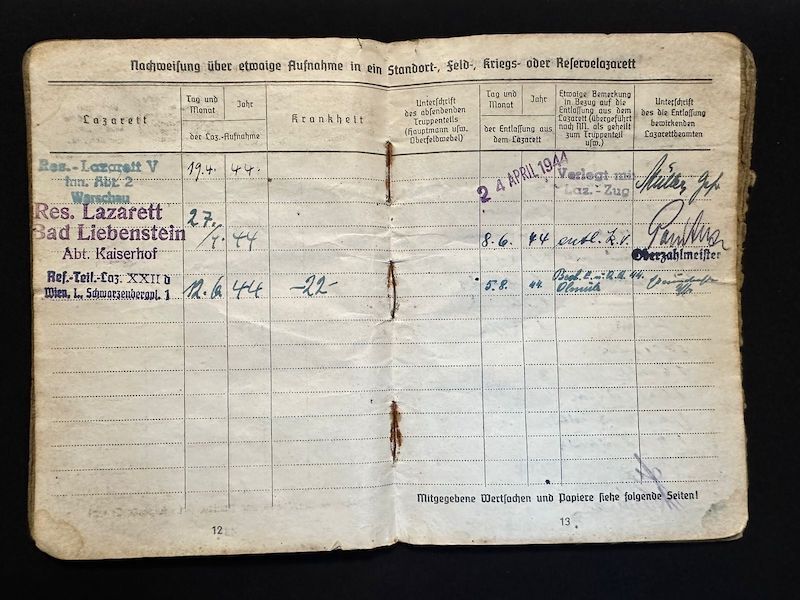 Nachweisung über etwaige Aufnahme in ein Standort-, Feld-, Kriegs- oder Reservelazarett
Lazarett
Tag und
Monat
Jahr
der Laz.-Aufnahme
Krankheit
Unterschrift
des absendenden
Truppenteils
(Hauptmann usw.
Oberfeldwebel)
Tag und
Monat
Jahr
der Entlassung aus
dem Lazarett
Etwaige Bemerkung
in Bezug auf die
Entlassung aus dem
Lazarett (übergeführt
nach NN. als geheilt
zum Truppenteil
usw.)
Unterschrift
des die Entlassung
bewirkenden
Lazarettbeamten
Res.-Lazarett V
Inn. Abt. 2
Warschau
19.4. 44.
24 APRIL 1944
Verlegt mit
Laz.-Zug
Müller Gefr
Res. Lazarett
Bad Liebenstein
Abt. Kaiserhof
27.
/4. 44
8.6. 44 entl. k.v.
Oberzahlmeister
Res.-Teil-Laz. XXII d
Wien, I., Schwarzenbergpl. 1
12.6. 44 -22-
5.8. 44.
44.
Olmütz
Mitgegebene Wertsachen und Papiere siehe folgende Seiten!
12
13